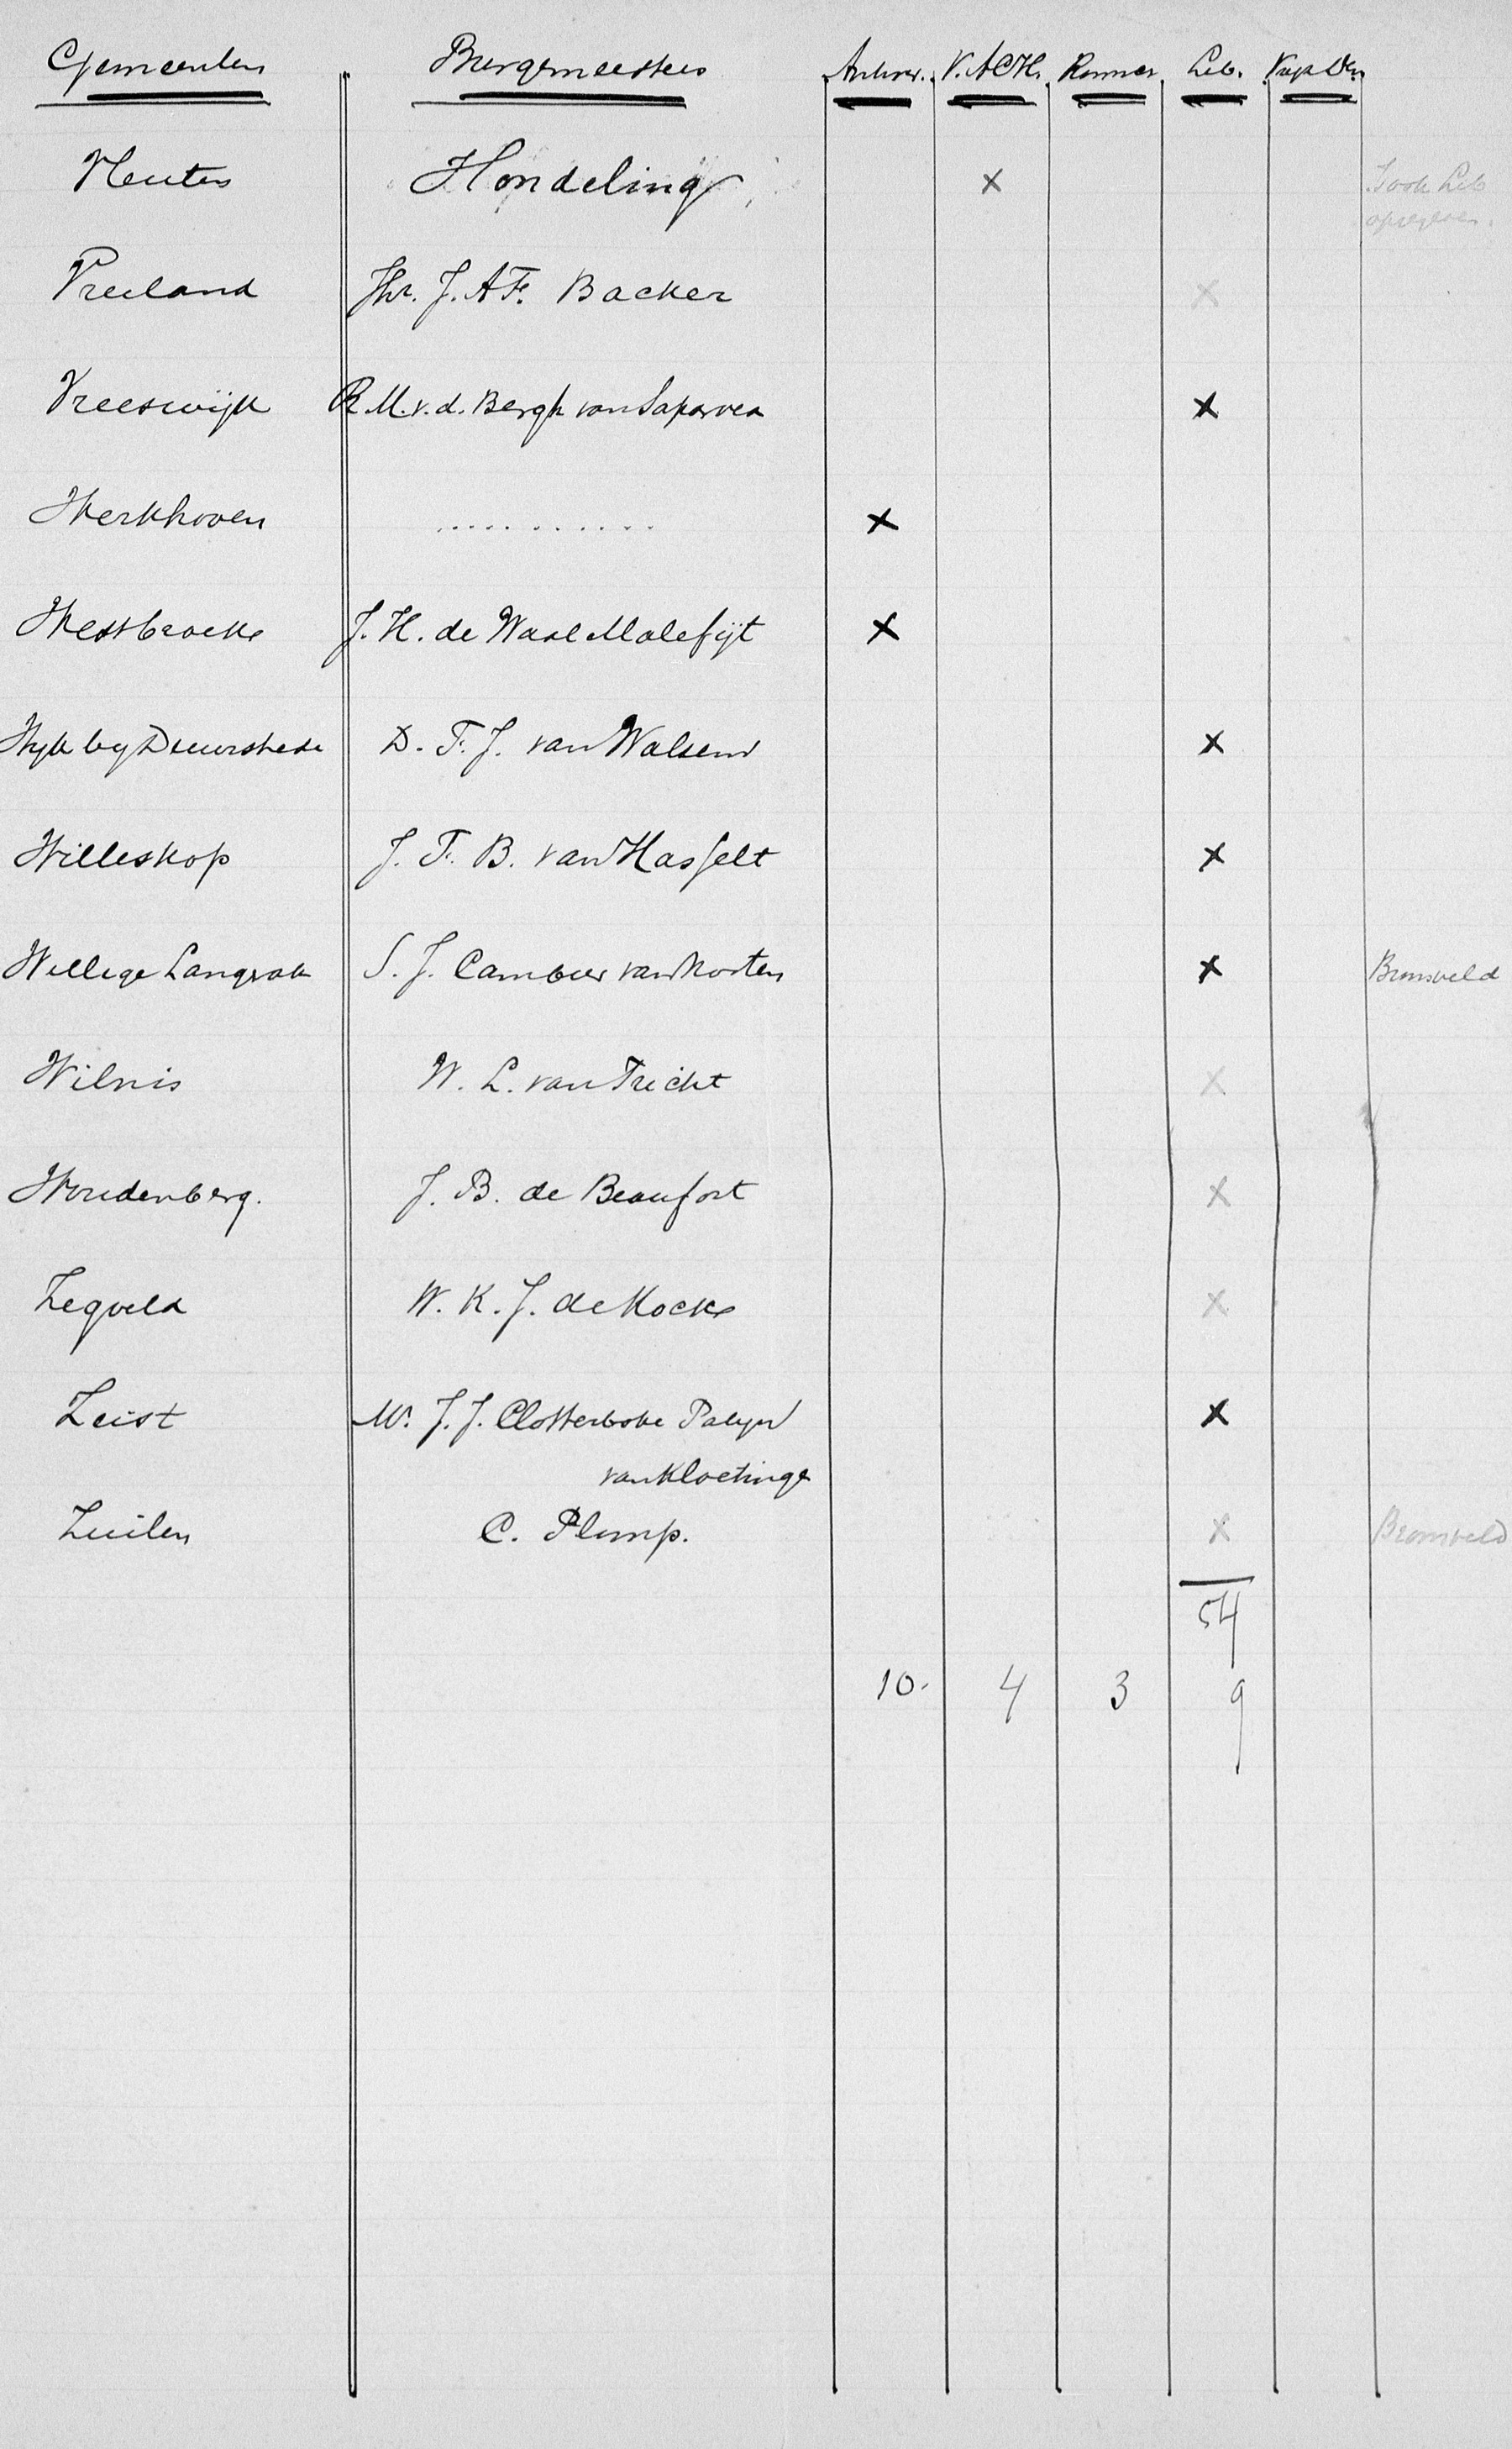 Gemeenten Burgemeesters Antirev. V.ACH. Roomsch Lib. Vrijz Dem
Vleuten Hondeling x
Vreeland Jhr. J. A F. Backer x
Vreeswijk R M. v. d. Bergh van Saparoea x
Werkhoven ........... x
Westbroek J. H. de Waal Malefijt x
Wijk bij Duurstede D. F. J. van Walsem x
Willeskop J. F. B. van Hasselt x
Willige Langrak S. J. Cambier van Nooten x Bronsveld
Wilnis W. L. van Tricht x
Woudenberg. J. B. de Beaufort x
Zegveld W. K. J. de Kock x
Zeist Mr. J. J. Clotterbooke Patijn x
van Kloetinge
Zuilen C. Plomp. x Bronsveld
54
10. 4 3 9